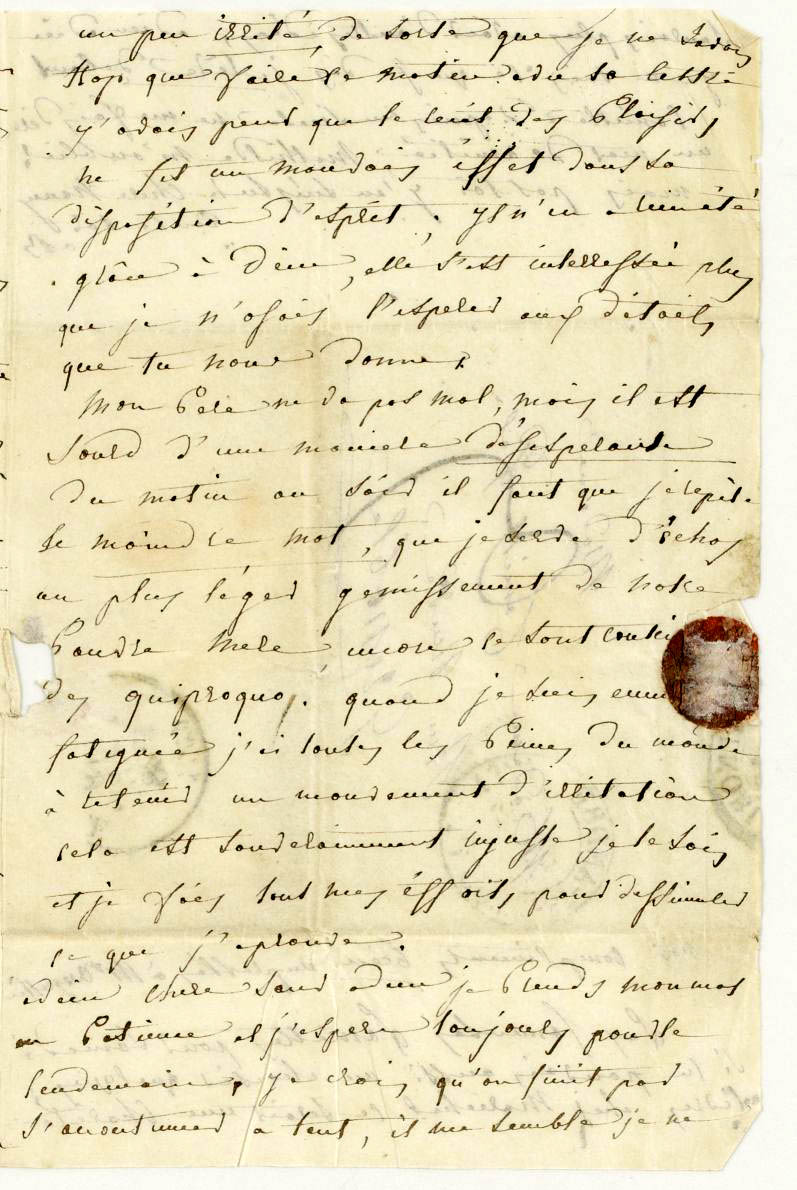 un peu irrité, de sorte que je ne savois
trop que faire le matin a du sa lettre
j'avois peur que le récit des Plaisirs
ne fit un mauvais éffet dans sa
disposition d'esprit, yl n'en a rien été
grâce à Dieu, elle s'est interressée plus
que je n'osois l'esperer aux détails
que tu nous donne.
Mon Pere ne va pas mal, mais il est
sourd d'une maniere désesperante
du matin au soir il faut que je repète
le moindre mot, que je serve d'échos
au plus léger gemissement de notre
Pauvre Mere, encore ce sont
des quiproquo. quand je suis
fatiguée j'ai toutes les Peines du monde
à retenir un mouvement d'irritation
cela est souverainement injuste je le sais
et je fais tout mes éfforts, pour dissimuler
ce que j'eprouve.
adieu chere sœur adieu je Prends mon mal
en Patience et j'espere toujours pour le
lendemain, je crois qu'on finit par
s'accoutumer a tout, il me semble je ne